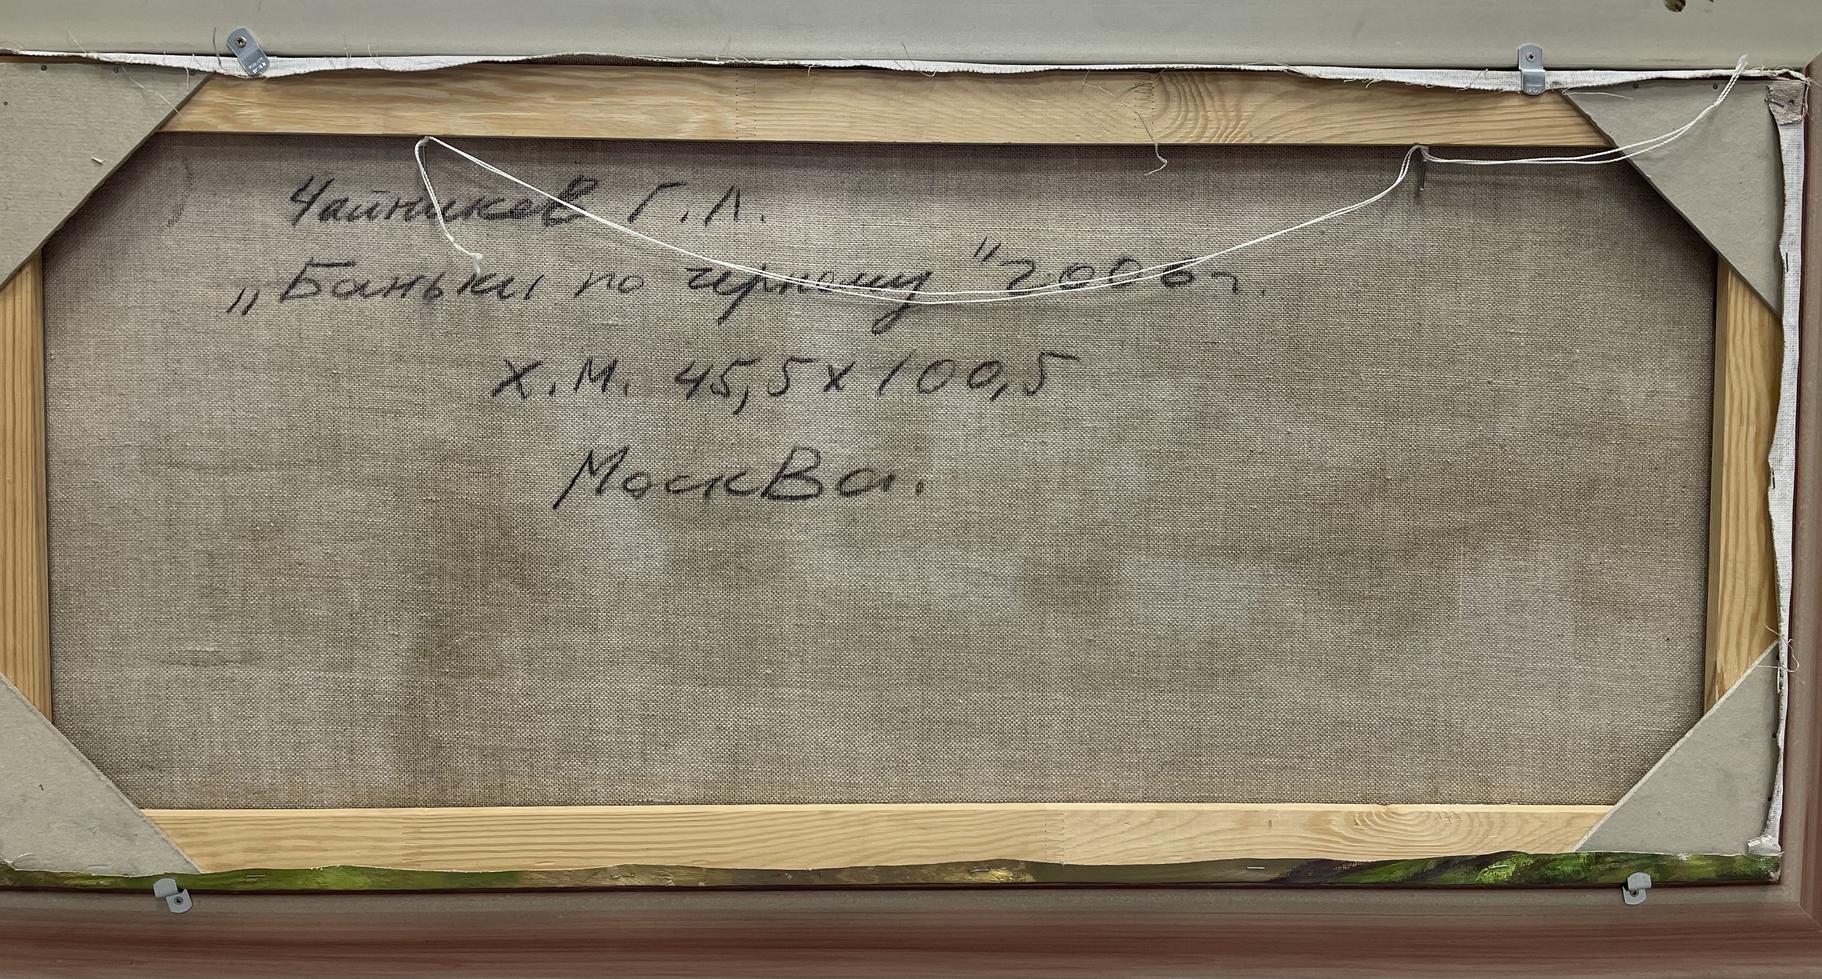 Чайников Г.Л.
„Баньки по черному" 2000г.
Х.М. 45,5х100,5
Москва.